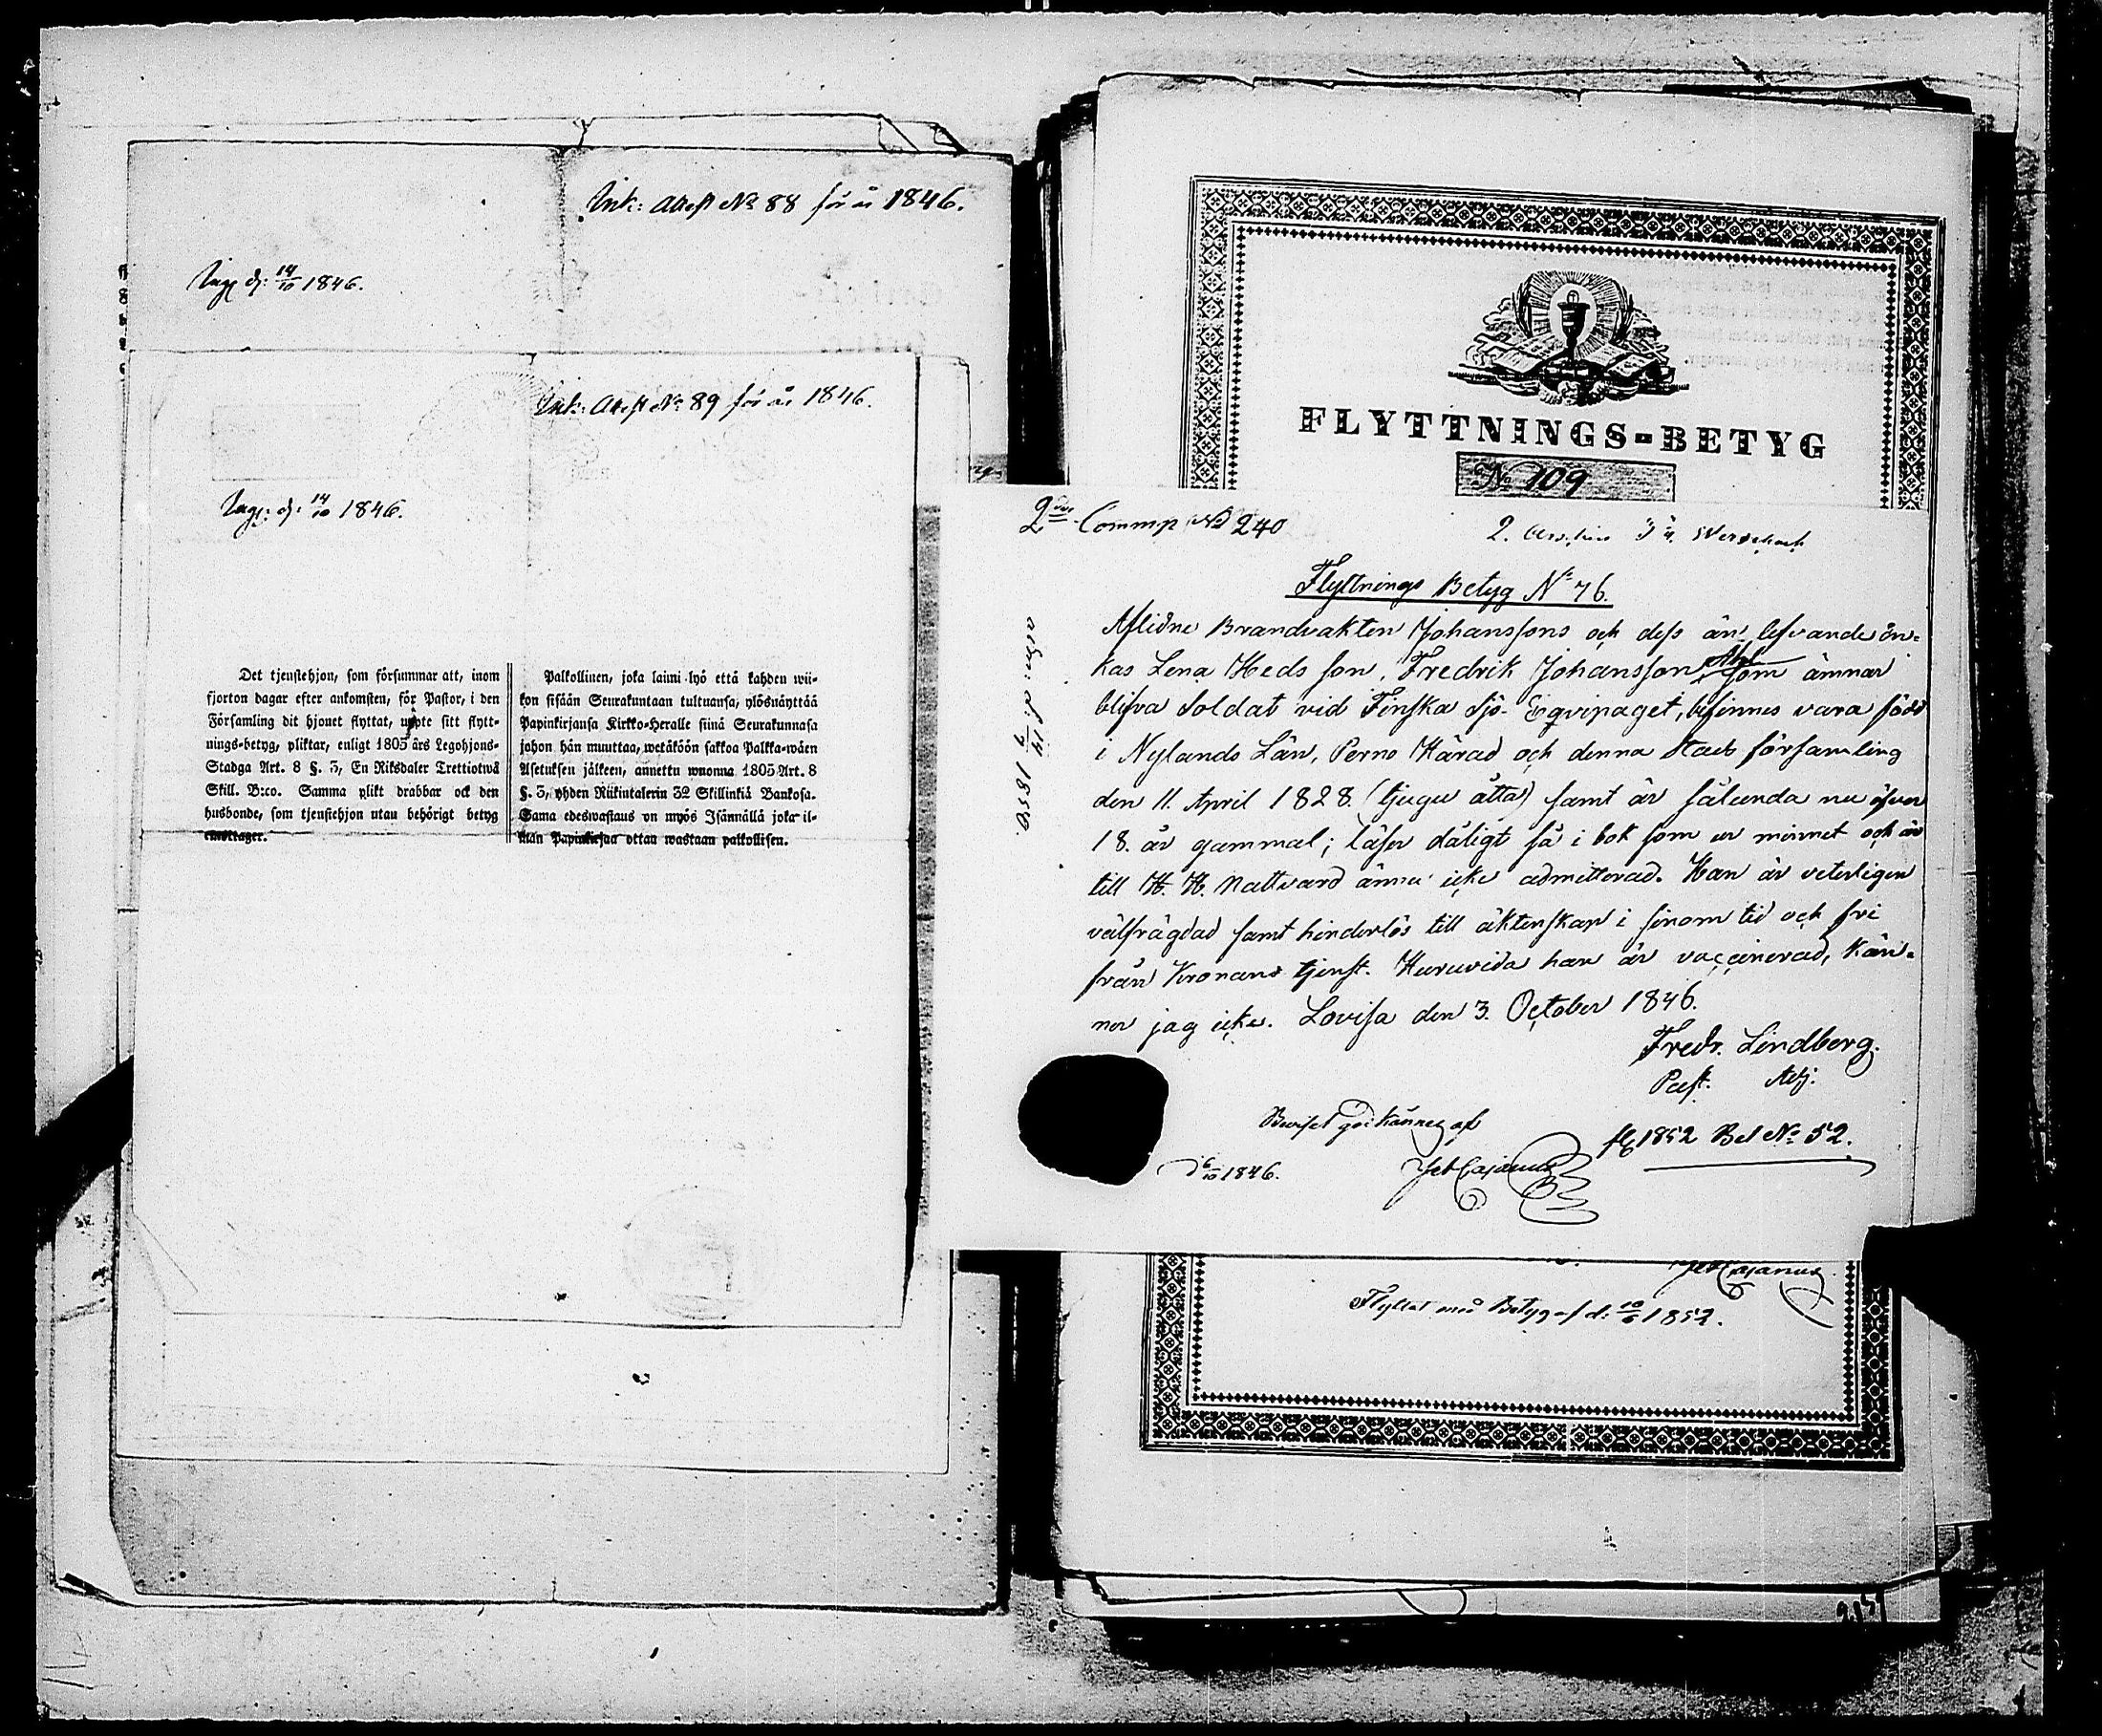 Ink: Attest No 88 för år 1846.
Uppv. d: 14/10 1846.
Ink: Attest No 89 för år 1846.
d: 14/10 1846.
Det tjenstehjon, som försummar att, inom
fjorton dagar efter ankomsten, för Pastor, i den
Församling dit hjonet flyttat, uppte sitt flytt-
nings-betyg, pliktar, enligt 1805 års Legohjons-
Stadga Art. 8 §. 3, En Riksdaler Trettiotwå
Skill. B:co. Samma plikt drabbar ock den
husbonde, som tjenstehjon utan behörigt betyg
emottager.
Palkollinen, joka laimi-lyö että kahden wii-
kon sisään Seurakuntaan tultuansa, ylösnäyttää
Papinkirjansa Kirkko-Heralle siinä Seurakunnasa
johon hän muuttaa, wetäköön sakkoa Palkka-wäen
Asetuksen jälkeen, annettu wuonna 1805 Art. 8
§. 3, yhden Riikintalerin 32 Skillinkiä Bankosa.
Sama edeswastaus on myös Isännällä joka il-
man Papinkirjaa ottaa wastaan palkollisen.
FLYTTNINGS-BETYG
No 109
2dra Commp No 240
2. Arschin 3 4. Werschock
Flyttnings Betyg No 76.
Aflidne Brandvakten Johanssons och dess än lefvande än-
kas Lena Heds son, Fredrik Johansson, som ämnar
blifva Soldat vid Finska Sjö-Eqvipaget, befinnes vara född
i Nylands Län, Perno Härad och denna Stads församling
den 11. April 1828. (tjugu åtta) samt är sålunda nu öfver
18. år gammal; läser dåligt så i bok som ur minnet och är
till H. H. Nattvard ännu icke admitterad. Han är veterligen
välfrägdad samt hinderlös till äktenskap i sinom tid och fri
från Kronans tjenst. Huruvida han är vaccinerad, kän-
ner jag icke. Lovisa den 3. October 1846.
Fredr. Lindberg.
Past. Adj.
Beviset godkännes af
d 6/10 1846.
Cajanus
fl 1852 Bet No 52.
d. 14/9 1850.
Cajanus
Flyttat med Betyg af d: 10/6 1852.